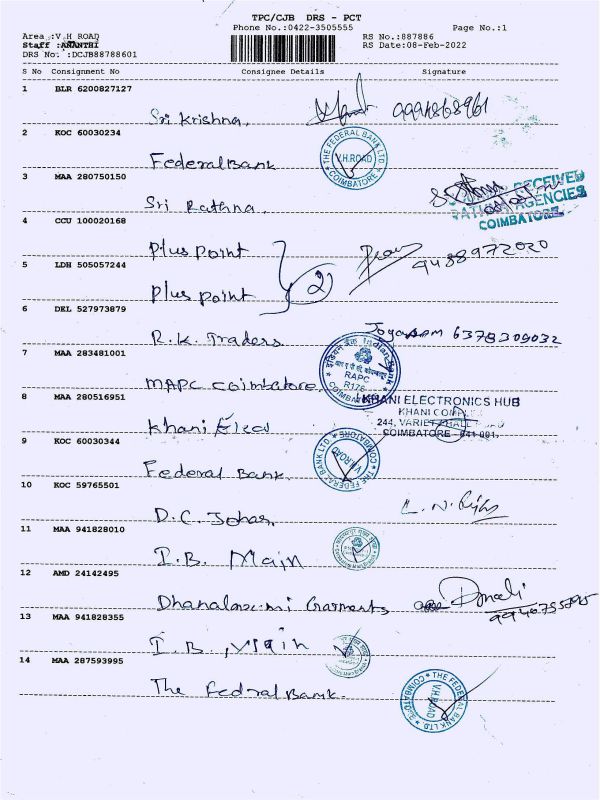 TPC/CJB DRS - PCT
Phone No.:0422-3505555 Page No.:1
Area :V.H ROAD RS No.:887886
Staff :ANANTHI RS Date:08-Feb-2022
DRS No. :DCJB88788601
S No Consignment No Consignee Details Signature
1 BLR 6200827127
Sri Krishna.
2 KOC 60030234
THE FEDERAL BANK LTD. V.H.ROAD COIMBATORE
Federal Bank
3 MAA 280750150
RECEIVED
AGENCIES
COIMBATORE
Sri Rathna.
4 CCU 100020168
Plus Point
2 9488972020
5 LDH 505057244
Plus Point
6 DEL 527973879
R.K. Traders 6378309032
7 MAA 283481001
Indian Bank RAPC R176
MAPC Coimbatore.
8 MAA 280516951
KHANI ELECTRONICS HUB
KHANI COMPLEX
COIMBATORE - 641 001.
Khani Elec
9 KOC 60030344
THE FEDERAL BANK LTD. V.H.ROAD COIMBATORE
Federal Bank.
10 KOC 59765501
D.C. Johar
11 MAA 941828010
I.B. Main
12 AMD 24142495
Dhanalaxmi Garments
13 MAA 941828355
I.B. Main
14 MAA 287593995
The Fedral Bank.
THE FEDERAL BANK LTD. V.H.ROAD COIMBATORE